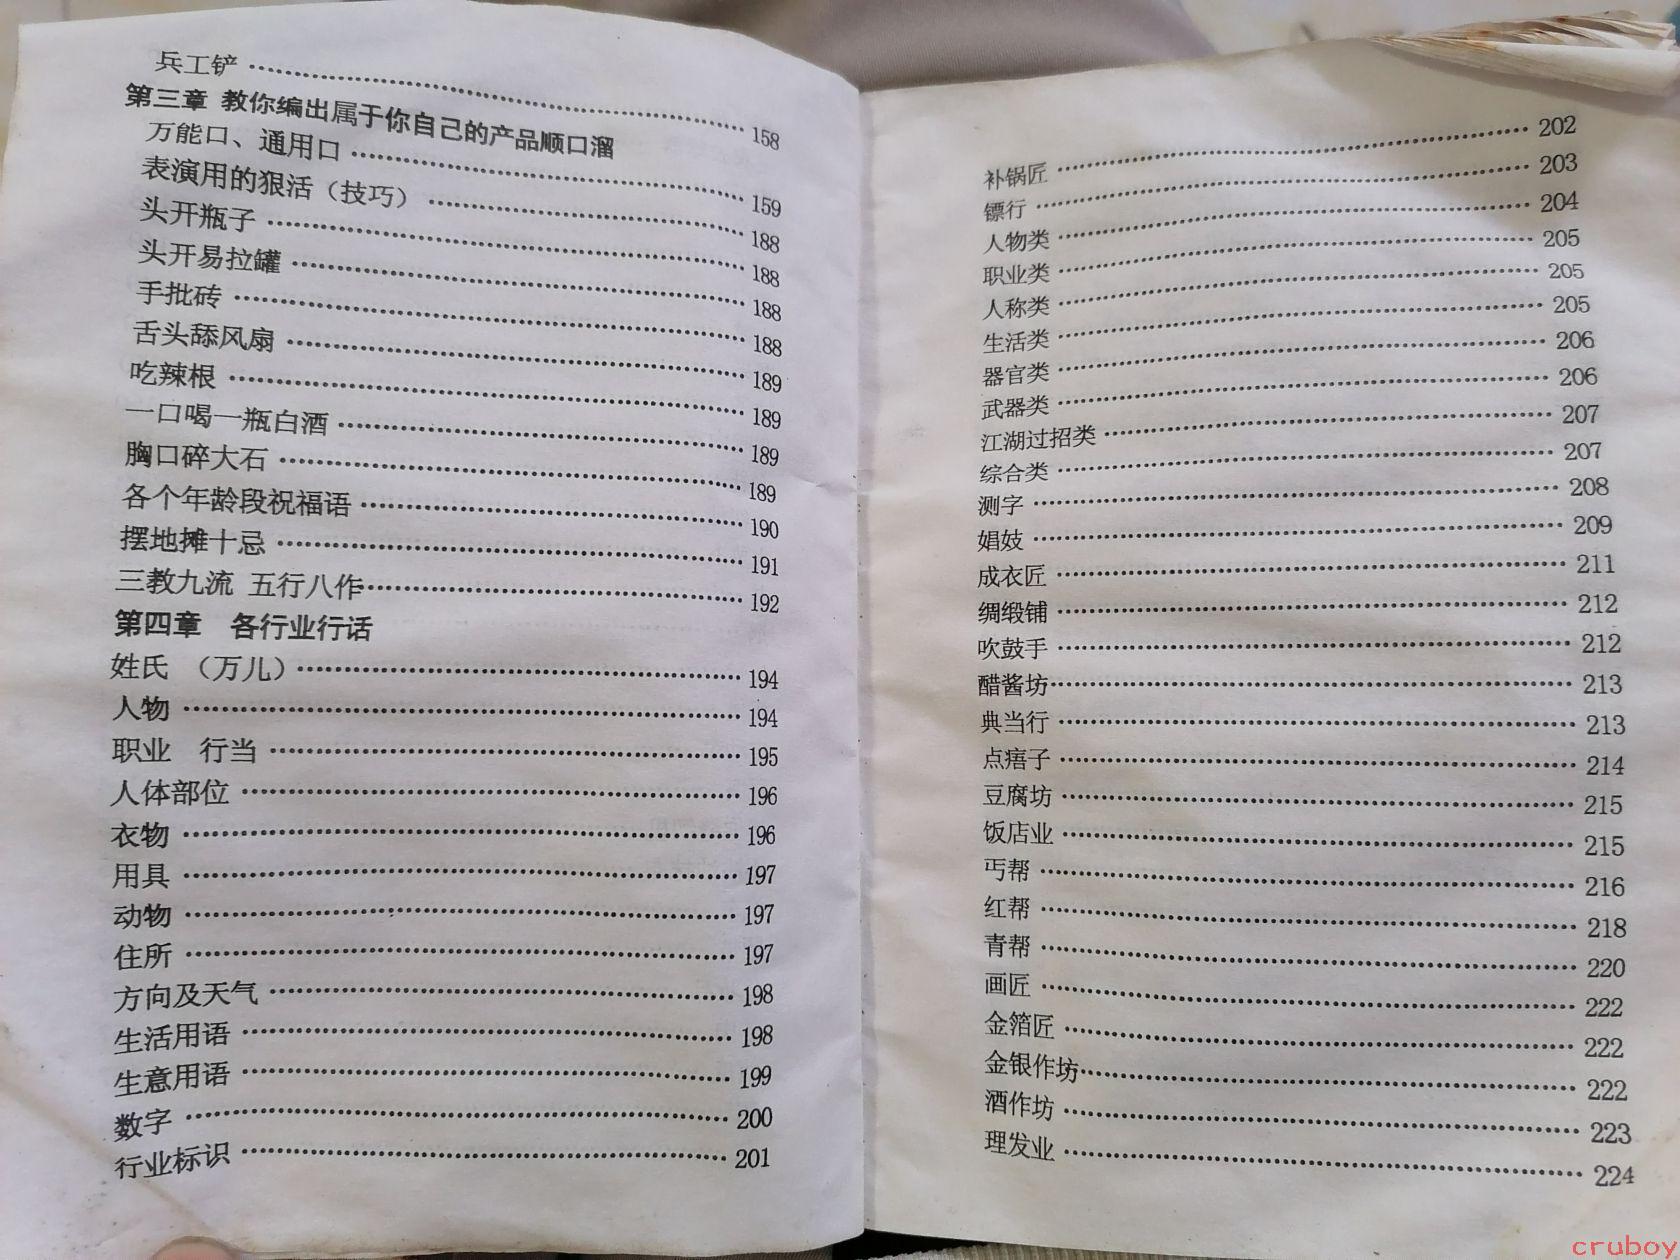 兵工铲 ………… 158
第三章 教你编出属于你自己的产品顺口溜
万能口、通用口 ………… 159
表演用的狠活（技巧） ………… 188
头开瓶子 ………… 188
头开易拉罐 ………… 188
手批砖 ………… 188
舌头舔风扇 ………… 189
吃辣根 ………… 189
一口喝一瓶白酒 ………… 189
胸口碎大石 ………… 189
各个年龄段祝福语 ………… 190
摆地摊十忌 ………… 191
三教九流 五行八作 ………… 192
第四章 各行业行话
姓氏 （万儿） ………… 194
人物 ………… 194
职业 行当 ………… 195
人体部位 ………… 196
衣物 ………… 196
用具 ………… 197
动物 ………… 197
住所 ………… 197
方向及天气 ………… 198
生活用语 ………… 198
生意用语 ………… 199
数字 ………… 200
行业标识 ………… 201
补锅匠 ………… 202
镖行 ………… 203
人物类 ………… 204
职业类 ………… 205
人称类 ………… 205
生活类 ………… 205
器官类 ………… 206
武器类 ………… 206
江湖过招类 ………… 207
综合类 ………… 207
测字 ………… 208
娼妓 ………… 209
成衣匠 ………… 211
绸缎铺 ………… 212
吹鼓手 ………… 212
醋酱坊 ………… 213
典当行 ………… 213
点痦子 ………… 214
豆腐坊 ………… 215
饭店业 ………… 215
丐帮 ………… 216
红帮 ………… 218
青帮 ………… 220
画匠 ………… 222
金箔匠 ………… 222
金银作坊 ………… 222
酒作坊 ………… 223
理发业 ………… 224
cruboy